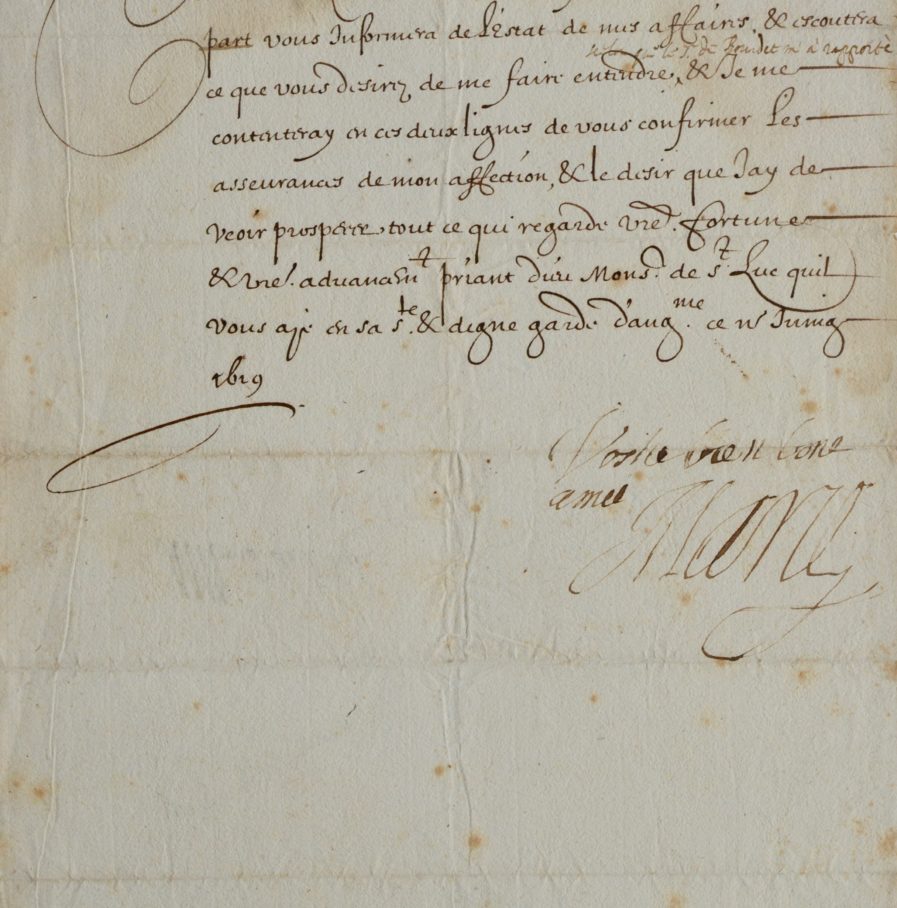 part vous Informera de l'Estat de mes affaires, & escoutera
le Sr. de Bourdet m'a rapporté
ce que vous desirez de me faire entendre, & Je me
contenteray en ces deux lignes de vous confirmer les
asseurances de mon affection, & le desir que Jay de
veoir prosperer tout ce qui regarde vre. fortune
& vre. aduancemt priant dieu Monsr. de St. Luc quil
vous aje en sa ste. & digne garde d'augme. ce Juing
1619
Vostre bien bone
amie
Marie